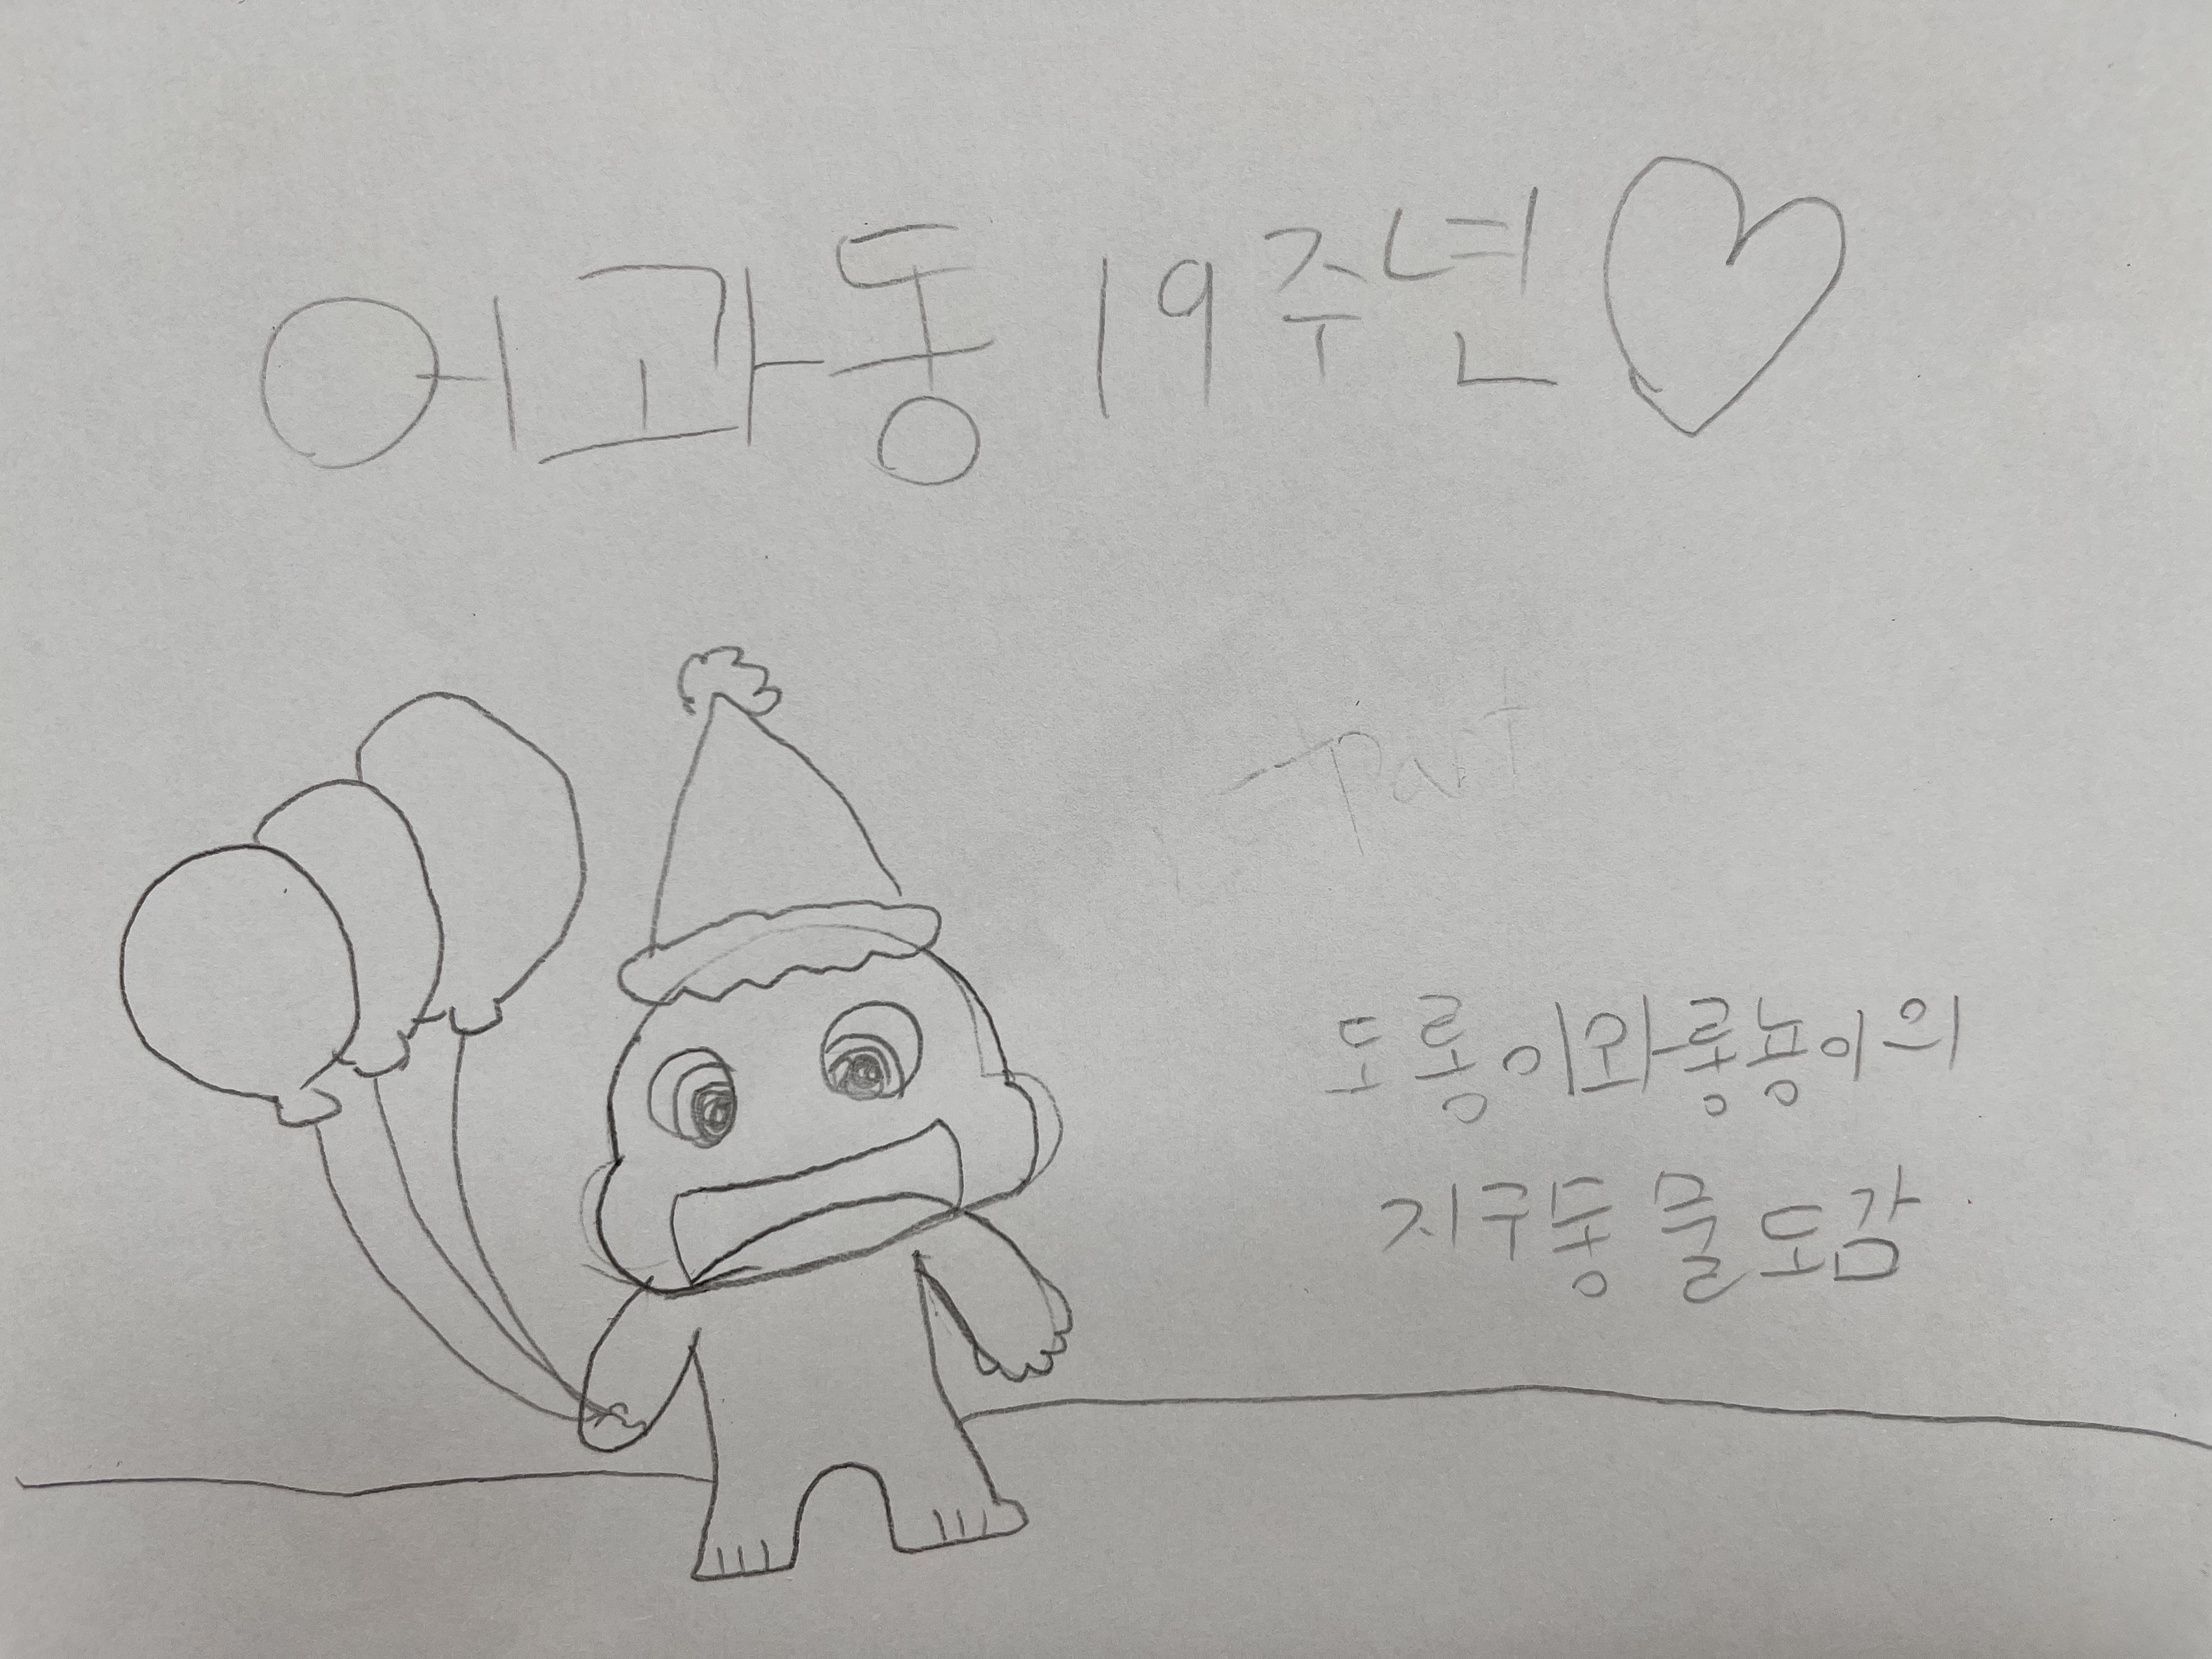 어과동 19주년♡
part
도롱이와롱뇽이의
지구동물도감